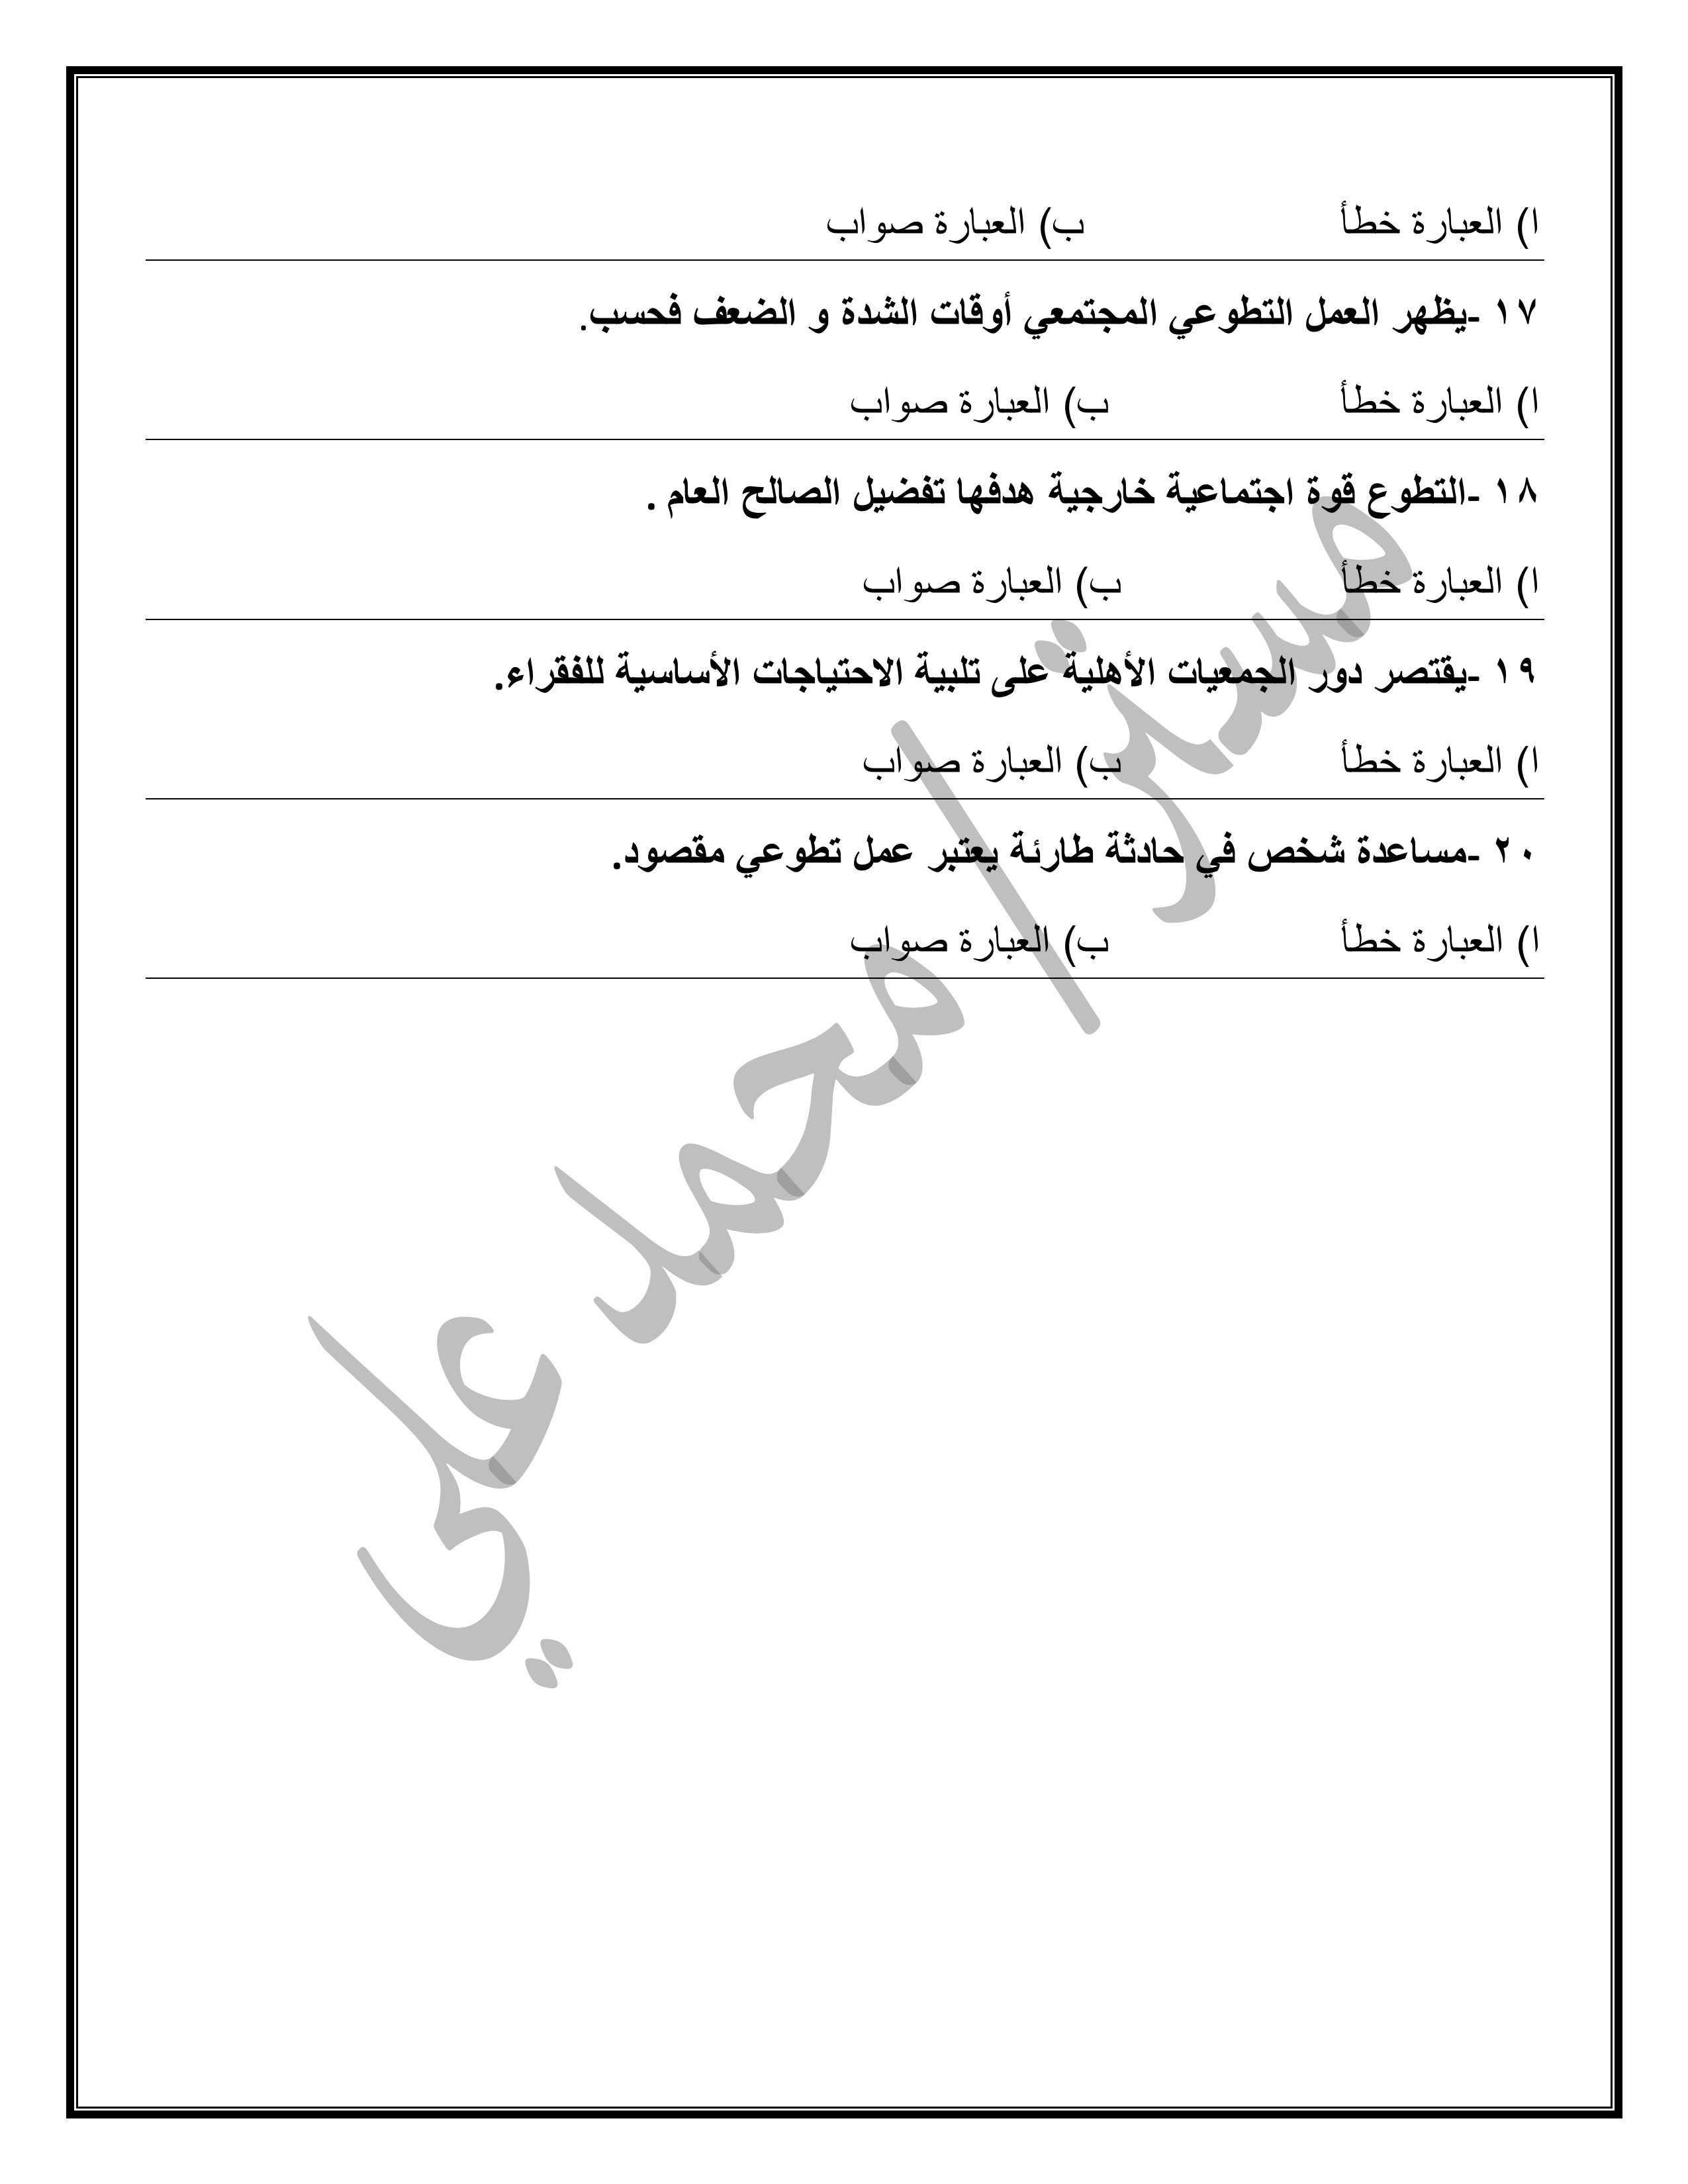 ا) العبارة خطأ ب) العبارة صواب
١٧ -يظهر العمل التطوعي المجتمعي أوقات الشدة و الضعف فحسب.
ا) العبارة خطأ ب) العبارة صواب
١٨ -التطوع قوة اجتماعية خارجية هدفها تفضيل الصالح العام .
ا) العبارة خطأ ب) العبارة صواب
١٩ -يقتصر دور الجمعيات الأهلية على تلبية الاحتياجات الأساسية للفقراء.
ا) العبارة خطأ ب) العبارة صواب
٢٠ -مساعدة شخص في حادثة طارئة يعتبر عمل تطوعي مقصود.
ا) العبارة خطأ ب) العبارة صواب
مستر/ محمد علي